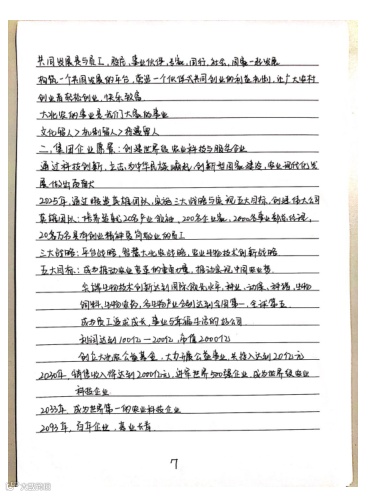 共同发展是与员工，股东，事业伙伴，专家，同行，社会，国家一起发展
构筑一个共同发展的平台，营造一个伙伴式共同创业的利益机制，让广大农村
创业者轻松创业，快乐致富
大北农的事业是我们大家的事业
文化留人＞机制留人＞待遇留人
二、集团企业愿景：创建世界级农业科技与服务企业
通过科技创新，立志为中华民族崛起，创新型国家建设，农业现代化发
展做出贡献
2025年，通过 英雄团队，实施三大战略与实现五大目标，创建伟大公司
英雄团队：培养造就20名产业领袖，200名企业家，2000名事业部总经理，
20多万名具有创业精神 的员工
三大战略：平台战略，智慧大北农战略，农业生物技术创新战略
五大目标：成为推动农业变革的重要力量，推动实现中国农业梦
农牧生物技术创新达到国际领先水平，种业，动保，种猪，生物
饲料，生物农药，各生物产业分别达到全国第一，全球第五
成为员工追求成长，事业与幸福生活的好公司
利润达到100亿－200亿，市值2000亿
创立大北农公益基金，大力开展公益事业，共投入达到20亿元
2030年，销售收入将达到2000亿元，进军世界500强企业，成为世界级农业
科技企业
2033年，成为世界第一的农业科技企业
2093年，百年企业，基业长青
7